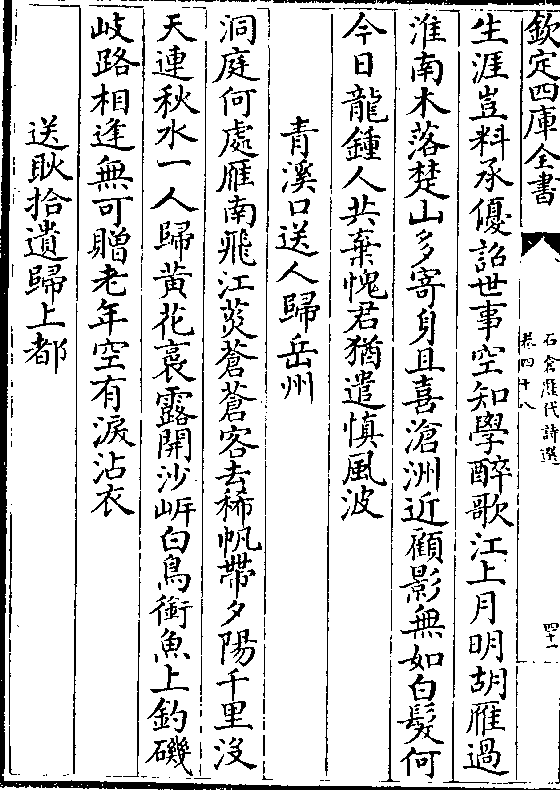 欽定四庫全書
石倉歷代詩選
卷四十八
四十一
生涯豈料承優詔世事空知學醉歌江上月明胡雁過
淮南木落楚山多寄身且喜滄洲近顧影無如白髮何
今日龍鍾人共棄愧君猶遣慎風波
青溪口送人歸岳州
洞庭何處雁南飛江菼蒼蒼客去稀帆帶夕陽千里沒
天連秋水一人歸黃花裛露開沙岸白鳥銜魚上釣磯
岐路相逢無可贈老年空有淚沾衣
送耿拾遺歸上都